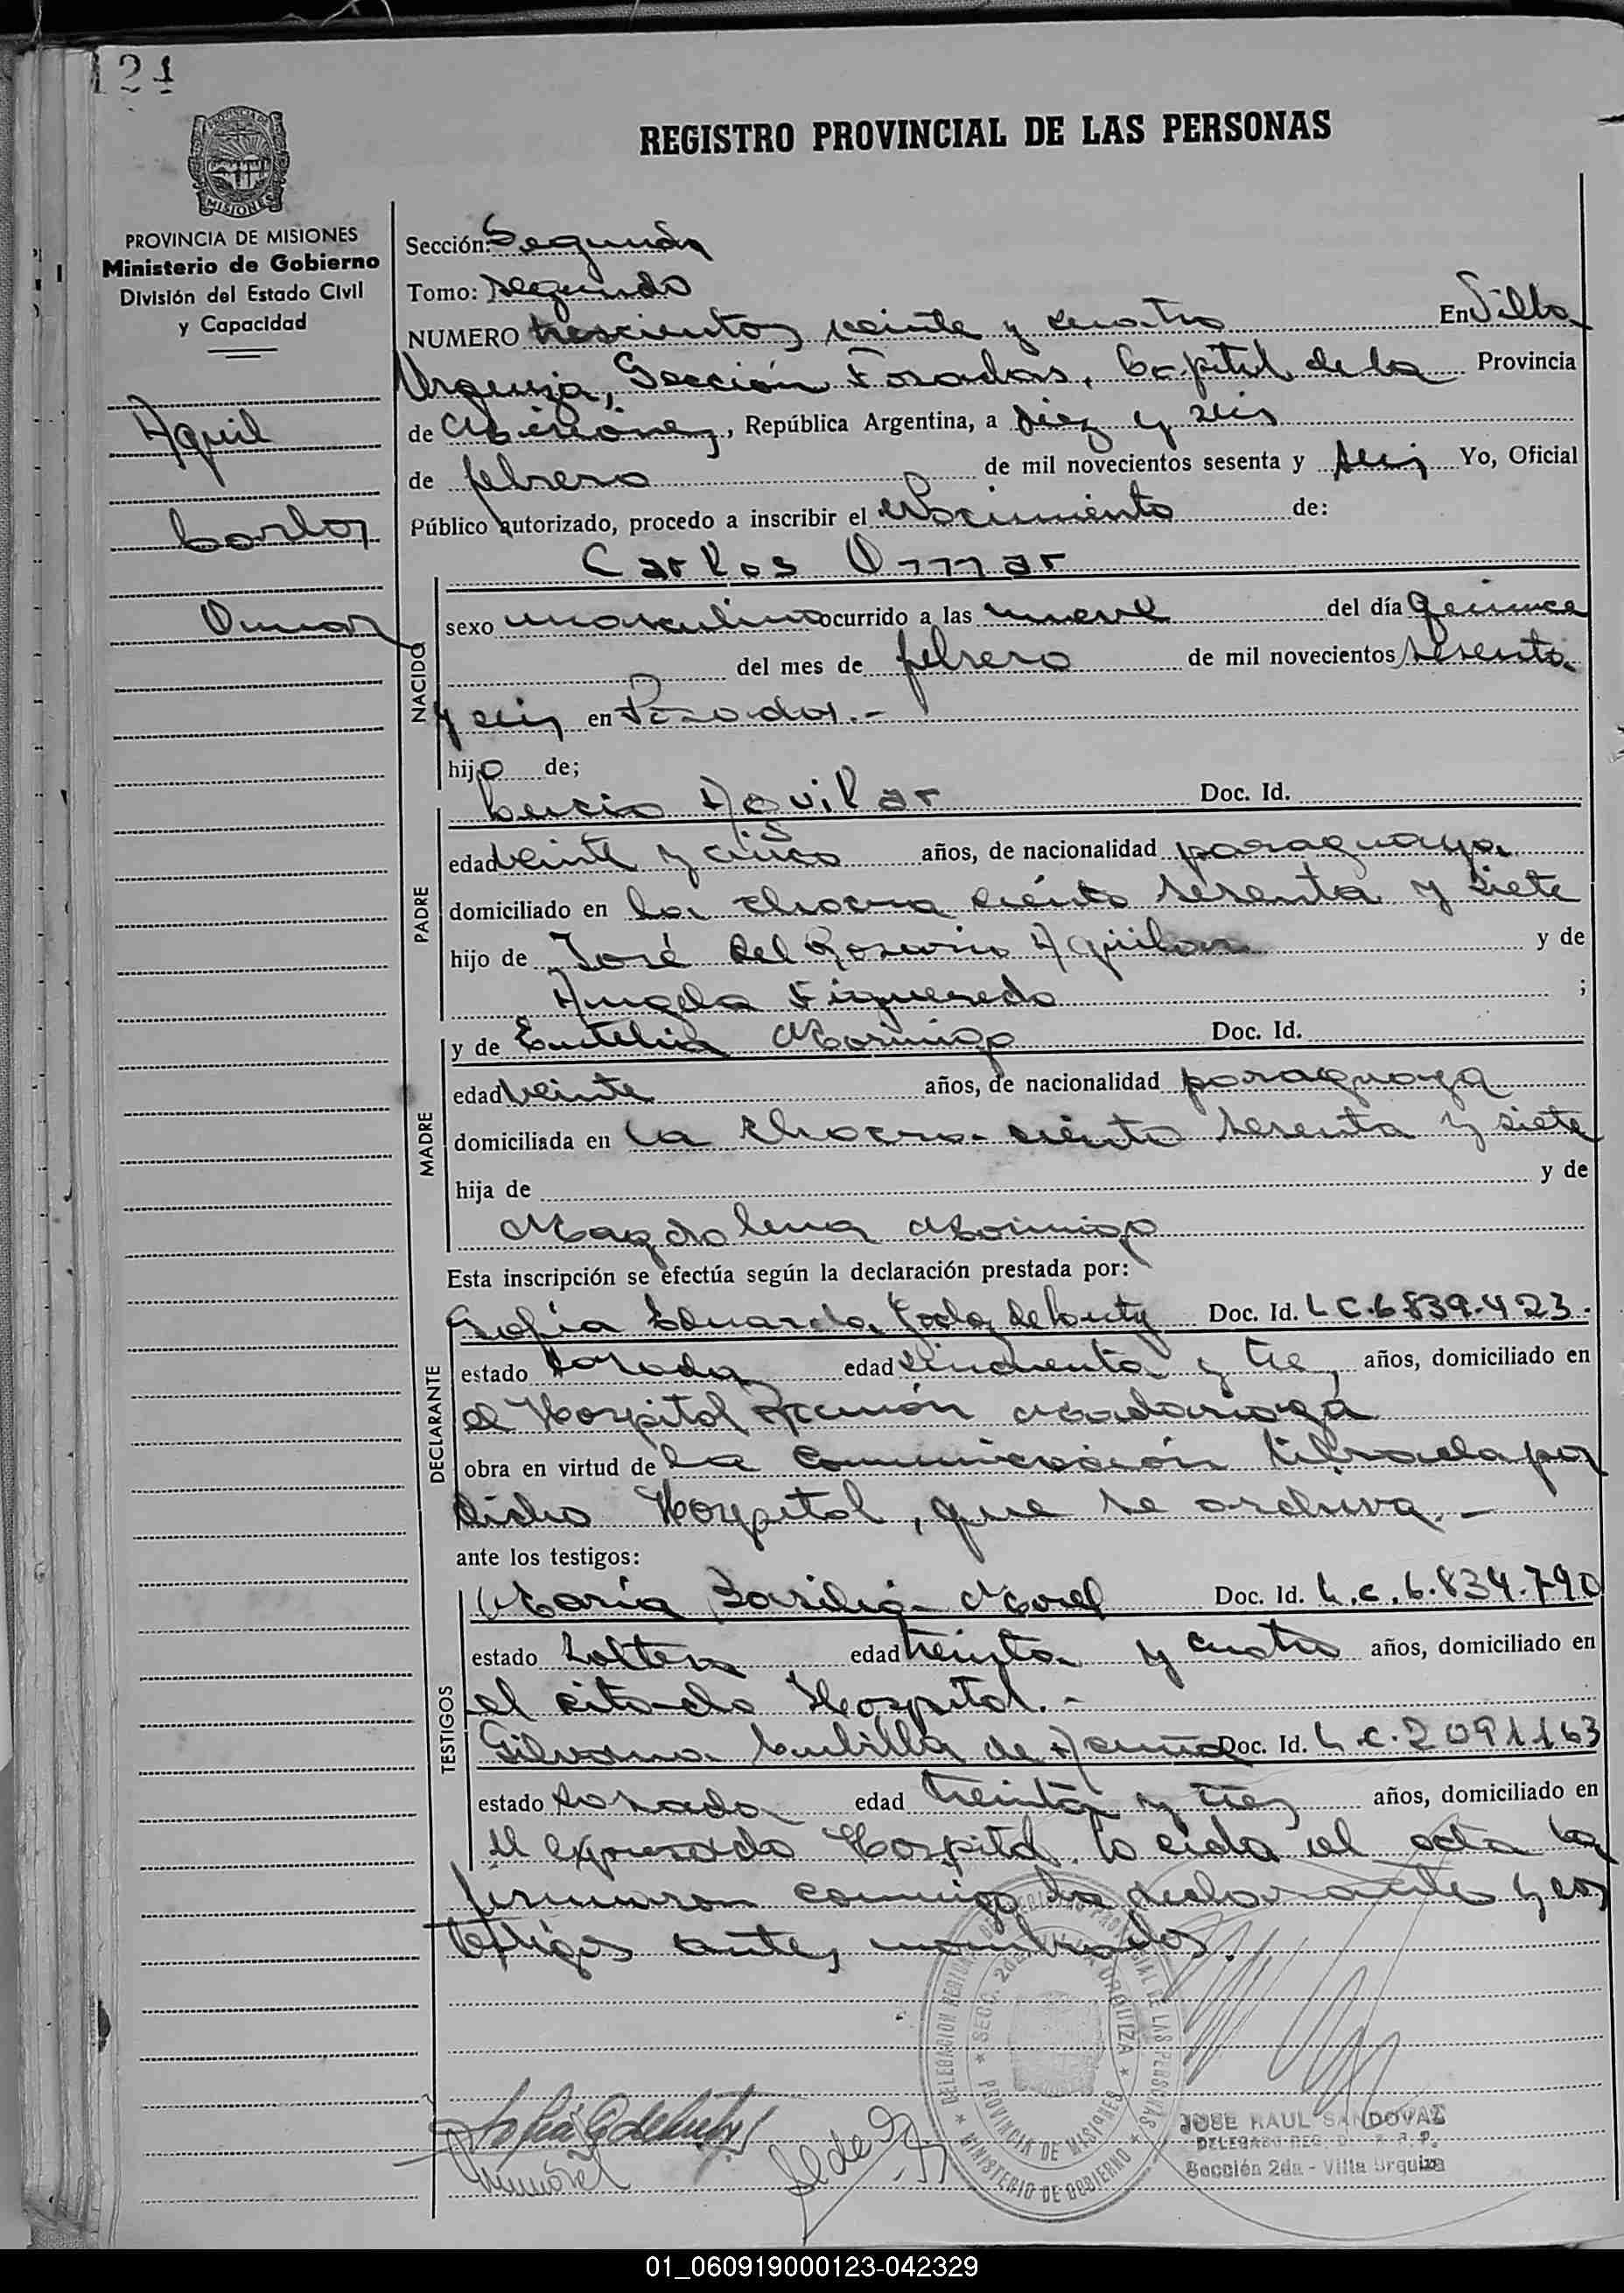 121
REGISTRO PROVINCIAL DE LAS PERSONAS
MISIONES
PROVINCIA DE MISIONES
Ministerio de Gobierno
División del Estado Civil
y Capacidad
Aquil
Carlos
Omar
Sección: Segunda
Tomo: Segundo
NUMERO trescientos veinte y cuatro En Villa
Urquiza, Sección Posadas, Capital de la Provincia
de Misiones, República Argentina, a diez y seis
de febrero de mil novecientos sesenta y seis Yo, Oficial
Público autorizado, procedo a inscribir el Nacimiento de:
Carlos Omar
NACIDO
sexo masculino ocurrido a las nueve del día quince
del mes de febrero de mil novecientos sesenta
y seis en Posadas.-
hijo de;
PADRE
Lucio Aquilar Doc. Id.
edad veinte y cinco años, de nacionalidad paraguaya
domiciliado en la chacra ciento sesenta y siete
hijo de José del Rosario Aquilar y de
Angela Figueredo ;
MADRE
y de Eutelia Morinigo Doc. Id.
edad veinte años, de nacionalidad paraguaya
domiciliada en la chacra ciento sesenta y siete
hija de y de
Magdalena Morinigo
Esta inscripción se efectúa según la declaración prestada por:
DECLARANTE
Sofía Eduarda de Doc. Id. L C.6.839.423.
estado casada edad cincuenta y tres años, domiciliado en
el Hospital Ramón Madariaga
obra en virtud de la comunicación librada por
dicho Hospital, que se archiva.-
ante los testigos:
TESTIGOS
María Basilia Morel Doc. Id. L.C.6.834.790
estado soltera edad treinta y cuatro años, domiciliado en
el citado Hospital.-
Silvana Cubilla de Acuña Doc. Id. L.C.2091163
estado casada edad treinta y tres años, domiciliado en
el expresado Hospital. Leida el acta la
firmaron conmigo la declarante y los
testigos antes nombrados.
DELEGACION REGISTRO PROVINCIAL DE LAS PERSONAS
SECC. 2da. VILLA URQUIZA
PROVINCIA DE MISIONES
MINISTERIO DE GOBIERNO
JOSE RAUL SANDOVAL
Sección 2da - Villa Urquiza
01_060919000123-042329